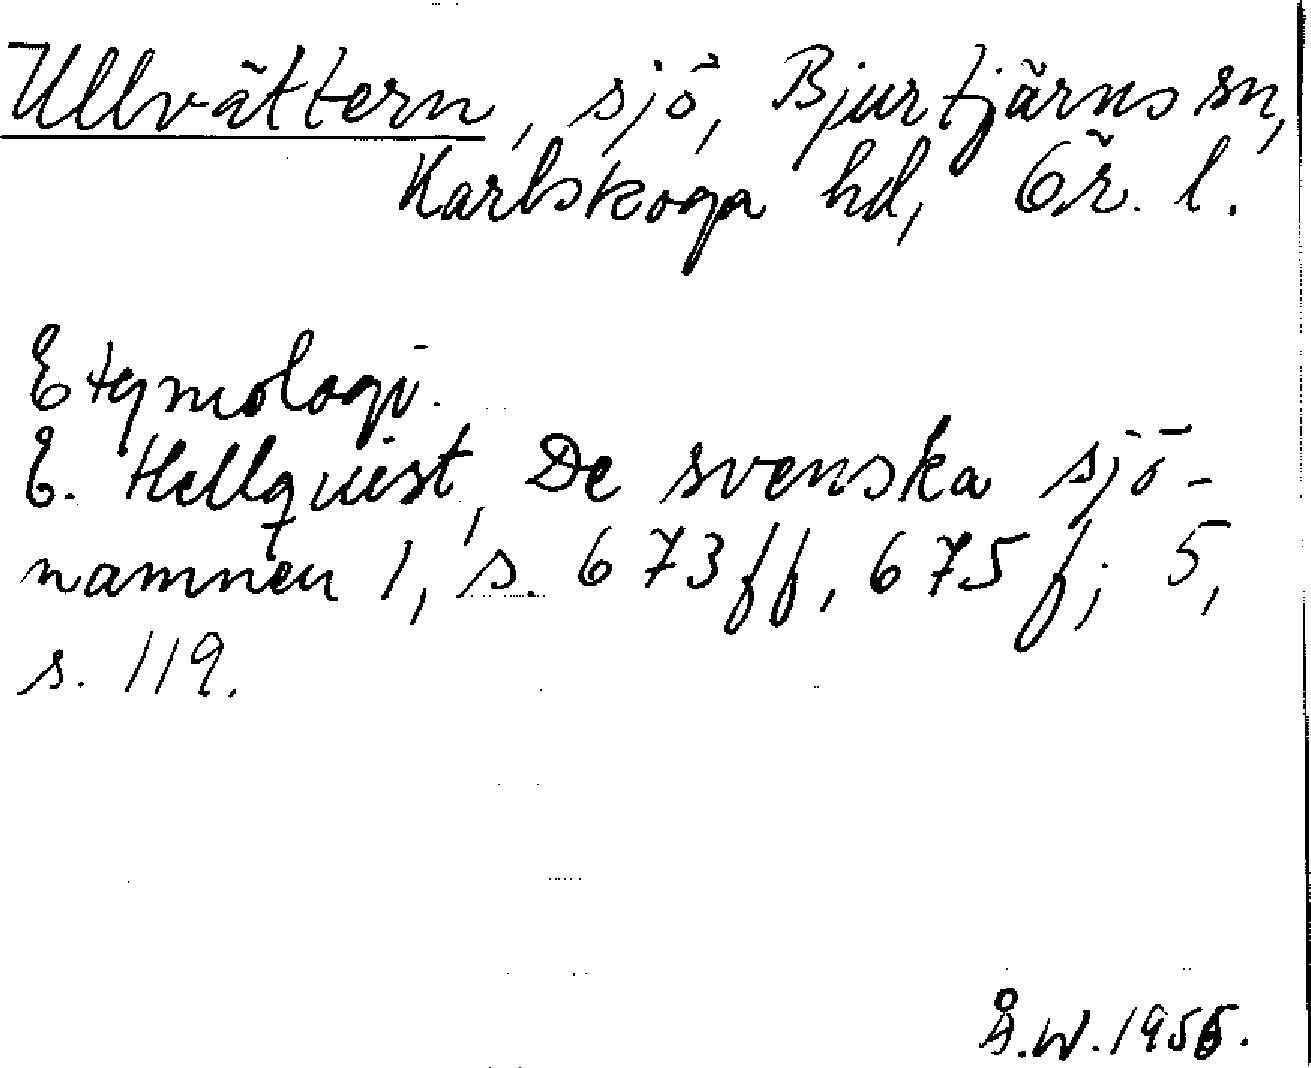 Ullvättern, sjö, Bjurtjärns sn,
Karlskoga hd, Ör. l.
Etymologi.
E. Hellquist, De svenska sjö-
namnen 1, s. 673 ff, 675 f; 5,
s. 119.
Å.W. 1955.